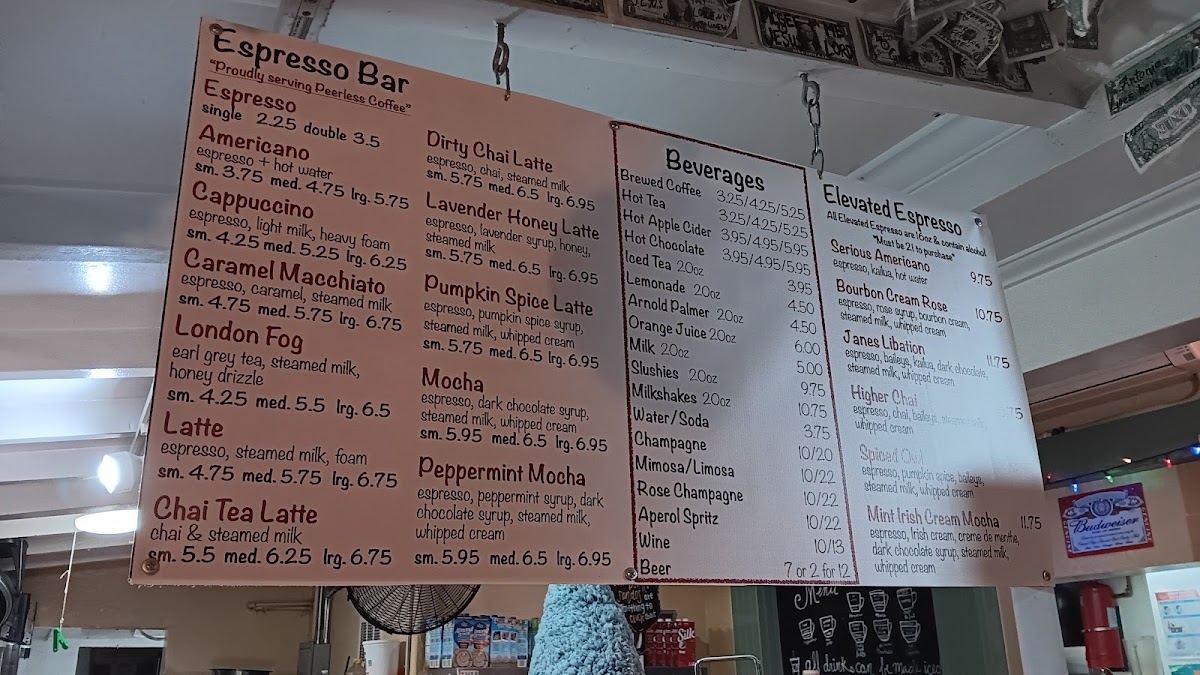 Espresso Bar
"Proudly serving Peerless Coffee"
Espresso
single 2.25 double 3.5
Americano
espresso + hot water
sm. 3.75 med. 4.75 lrg. 5.75
Cappuccino
espresso, light milk, heavy foam
sm. 4.25 med. 5.25 lrg. 6.25
Caramel Macchiato
espresso, caramel, steamed milk
sm. 4.75 med. 5.75 lrg. 6.75
London Fog
earl grey tea, steamed milk,
honey drizzle
sm. 4.25 med. 5.5 lrg. 6.5
Latte
espresso, steamed milk, foam
sm. 4.75 med. 5.75 lrg. 6.75
Chai Tea Latte
chai & steamed milk
sm. 5.5 med. 6.25 lrg. 6.75
Dirty Chai Latte
espresso, chai, steamed milk
sm. 5.75 med. 6.5 lrg. 6.95
Lavender Honey Latte
espresso, lavender syrup, honey,
steamed milk
sm. 5.75 med. 6.5 lrg. 6.95
Pumpkin Spice Latte
espresso, pumpkin spice syrup,
steamed milk, whipped cream
sm. 5.75 med. 6.5 lrg. 6.95
Mocha
espresso, dark chocolate syrup,
steamed milk, whipped cream
sm. 5.95 med. 6.5 lrg. 6.95
Peppermint Mocha
espresso, peppermint syrup, dark
chocolate syrup, steamed milk,
whipped cream
sm. 5.95 med. 6.5 lrg. 6.95
Beverages
Brewed Coffee 3.25/4.25/5.25
Hot Tea 3.25/4.25/5.25
Hot Apple Cider 3.95/4.95/5.95
Hot Chocolate 3.95/4.95/5.95
Iced Tea 20oz 3.95
Lemonade 20oz 4.50
Arnold Palmer 20oz 4.50
Orange Juice 20oz 6.00
Milk 20oz 5.00
Slushies 20oz 9.75
Milkshakes 20oz 10.75
Water/Soda 3.75
Champagne 10/20
Mimosa/Limosa 10/22
Rose Champagne 10/22
Aperol Spritz 10/22
Wine 10/13
Beer 7 or 2 for 12
Elevated Espresso
All Elevated Espresso are 16oz & contain alcohol
"Must be 21 to purchase"
Serious Americano 9.75
espresso, kailua, hot water
Bourbon Cream Rose 10.75
espresso, rose syrup, bourbon cream,
steamed milk, whipped cream
Janes Libation 11.75
espresso, baileys, kailua, dark chocolate,
steamed milk, whipped cream
Higher Chai
espresso, chai, baileys, steamed milk,
whipped cream
Spiced Owl
espresso, pumpkin spice, baileys,
steamed milk, whipped cream
Mint Irish Cream Mocha 11.75
espresso, Irish cream, creme de menthe,
dark chocolate syrup, steamed milk,
whipped cream
Budweiser
Silk
Menu
all drinks can be made iced